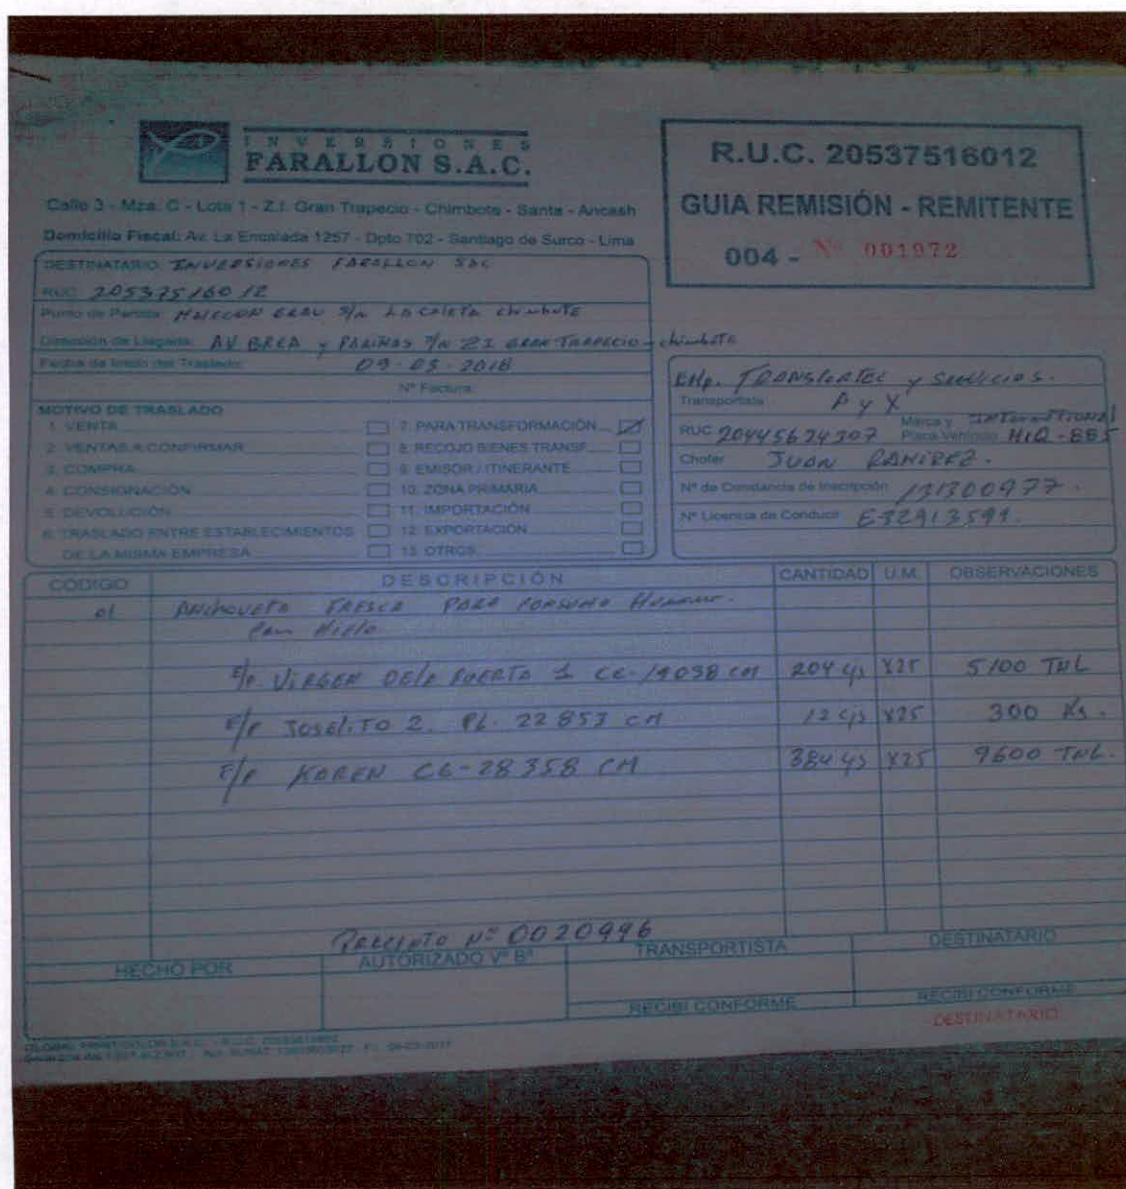 INVERSIONES
FARALLON S.A.C.
Calle 3 - Mza. C - Lote 1 - Z.I. Gran Trapecio - Chimbote - Santa - Ancash
Domicilio Fiscal: Av. La Encalada 1257 - Dpto 702 - Santiago de Surco - Lima
R.U.C. 20537516012
GUIA REMISIÓN - REMITENTE
004 - Nº 001972
DESTINATARIO: INVERSIONES FARALLON SAC
RUC: 20537516012
Punto de Partida: MALECON GRAU S/N LA CALETA chimbote
Dirección de Llegada: AV BREA y PARIÑAS S/N ZI GRAN TRAPECIO - chimbote
Fecha de Inicio del Traslado: 09-05-2018
Nº Factura:
MOTIVO DE TRASLADO
1. VENTA
2. VENTAS A CONFIRMAR
3. COMPRA
4. CONSIGNACIÓN
5. DEVOLUCIÓN
6. TRASLADO ENTRE ESTABLECIMIENTOS
DE LA MISMA EMPRESA
7. PARA TRANSFORMACIÓN
8. RECOJO BIENES TRANSF.
9. EMISOR / ITINERANTE
10. ZONA PRIMARIA
11. IMPORTACIÓN
12. EXPORTACIÓN
13. OTROS
Emp. TRANSPORTES y SERVICIOS.
Transportista A y X
RUC 20445624307 Marca y Placa Vehículo INTERNATIONAL H1Q-885
Chofer JUAN RAMIREZ.
Nº de Constancia de Inscripción 131300977.
Nº Licencia de Conducir E32913599.
CÓDIGO DESCRIPCIÓN CANTIDAD U.M. OBSERVACIONES
01 ANCHOVETA FRESCA PARA CONSUMO HUMANO.
Con Hielo
E/P VIRGEN DE LA PUERTA 1 CE-19038 CM 204 cjs X25 5100 TNL
E/P JOSELITO 2. PL. 22853 CM 12 cjs X25 300 Ks.
E/P KAREN CE-28358 CM 384 cjs X25 9600 TNL.
PRECINTO Nº 0020996
HECHO POR
AUTORIZADO Vº Bº
TRANSPORTISTA
DESTINATARIO
RECIBI CONFORME
RECIBI CONFORME
DESTINATARIO